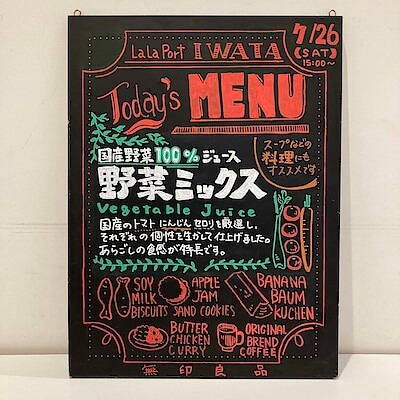 LaLa Port IWATA
7/26
(SAT)
15:00~
Today's MENU
国産野菜100%ジュース
野菜ミックス
Vegetable Juice
スープなどの
料理にも
オススメです
国産のトマト にんじん セロリを厳選し、
それぞれの個性を生かして仕上げました。
あらごしの食感が特長です。
SOY
MILK
BISCUITS
APPLE
JAM
SAND COOKIES
BANANA
BAUM
KUCHEN
BUTTER
CHICKEN
CURRY
ORIGINAL
BREND
COFFEE
無印良品